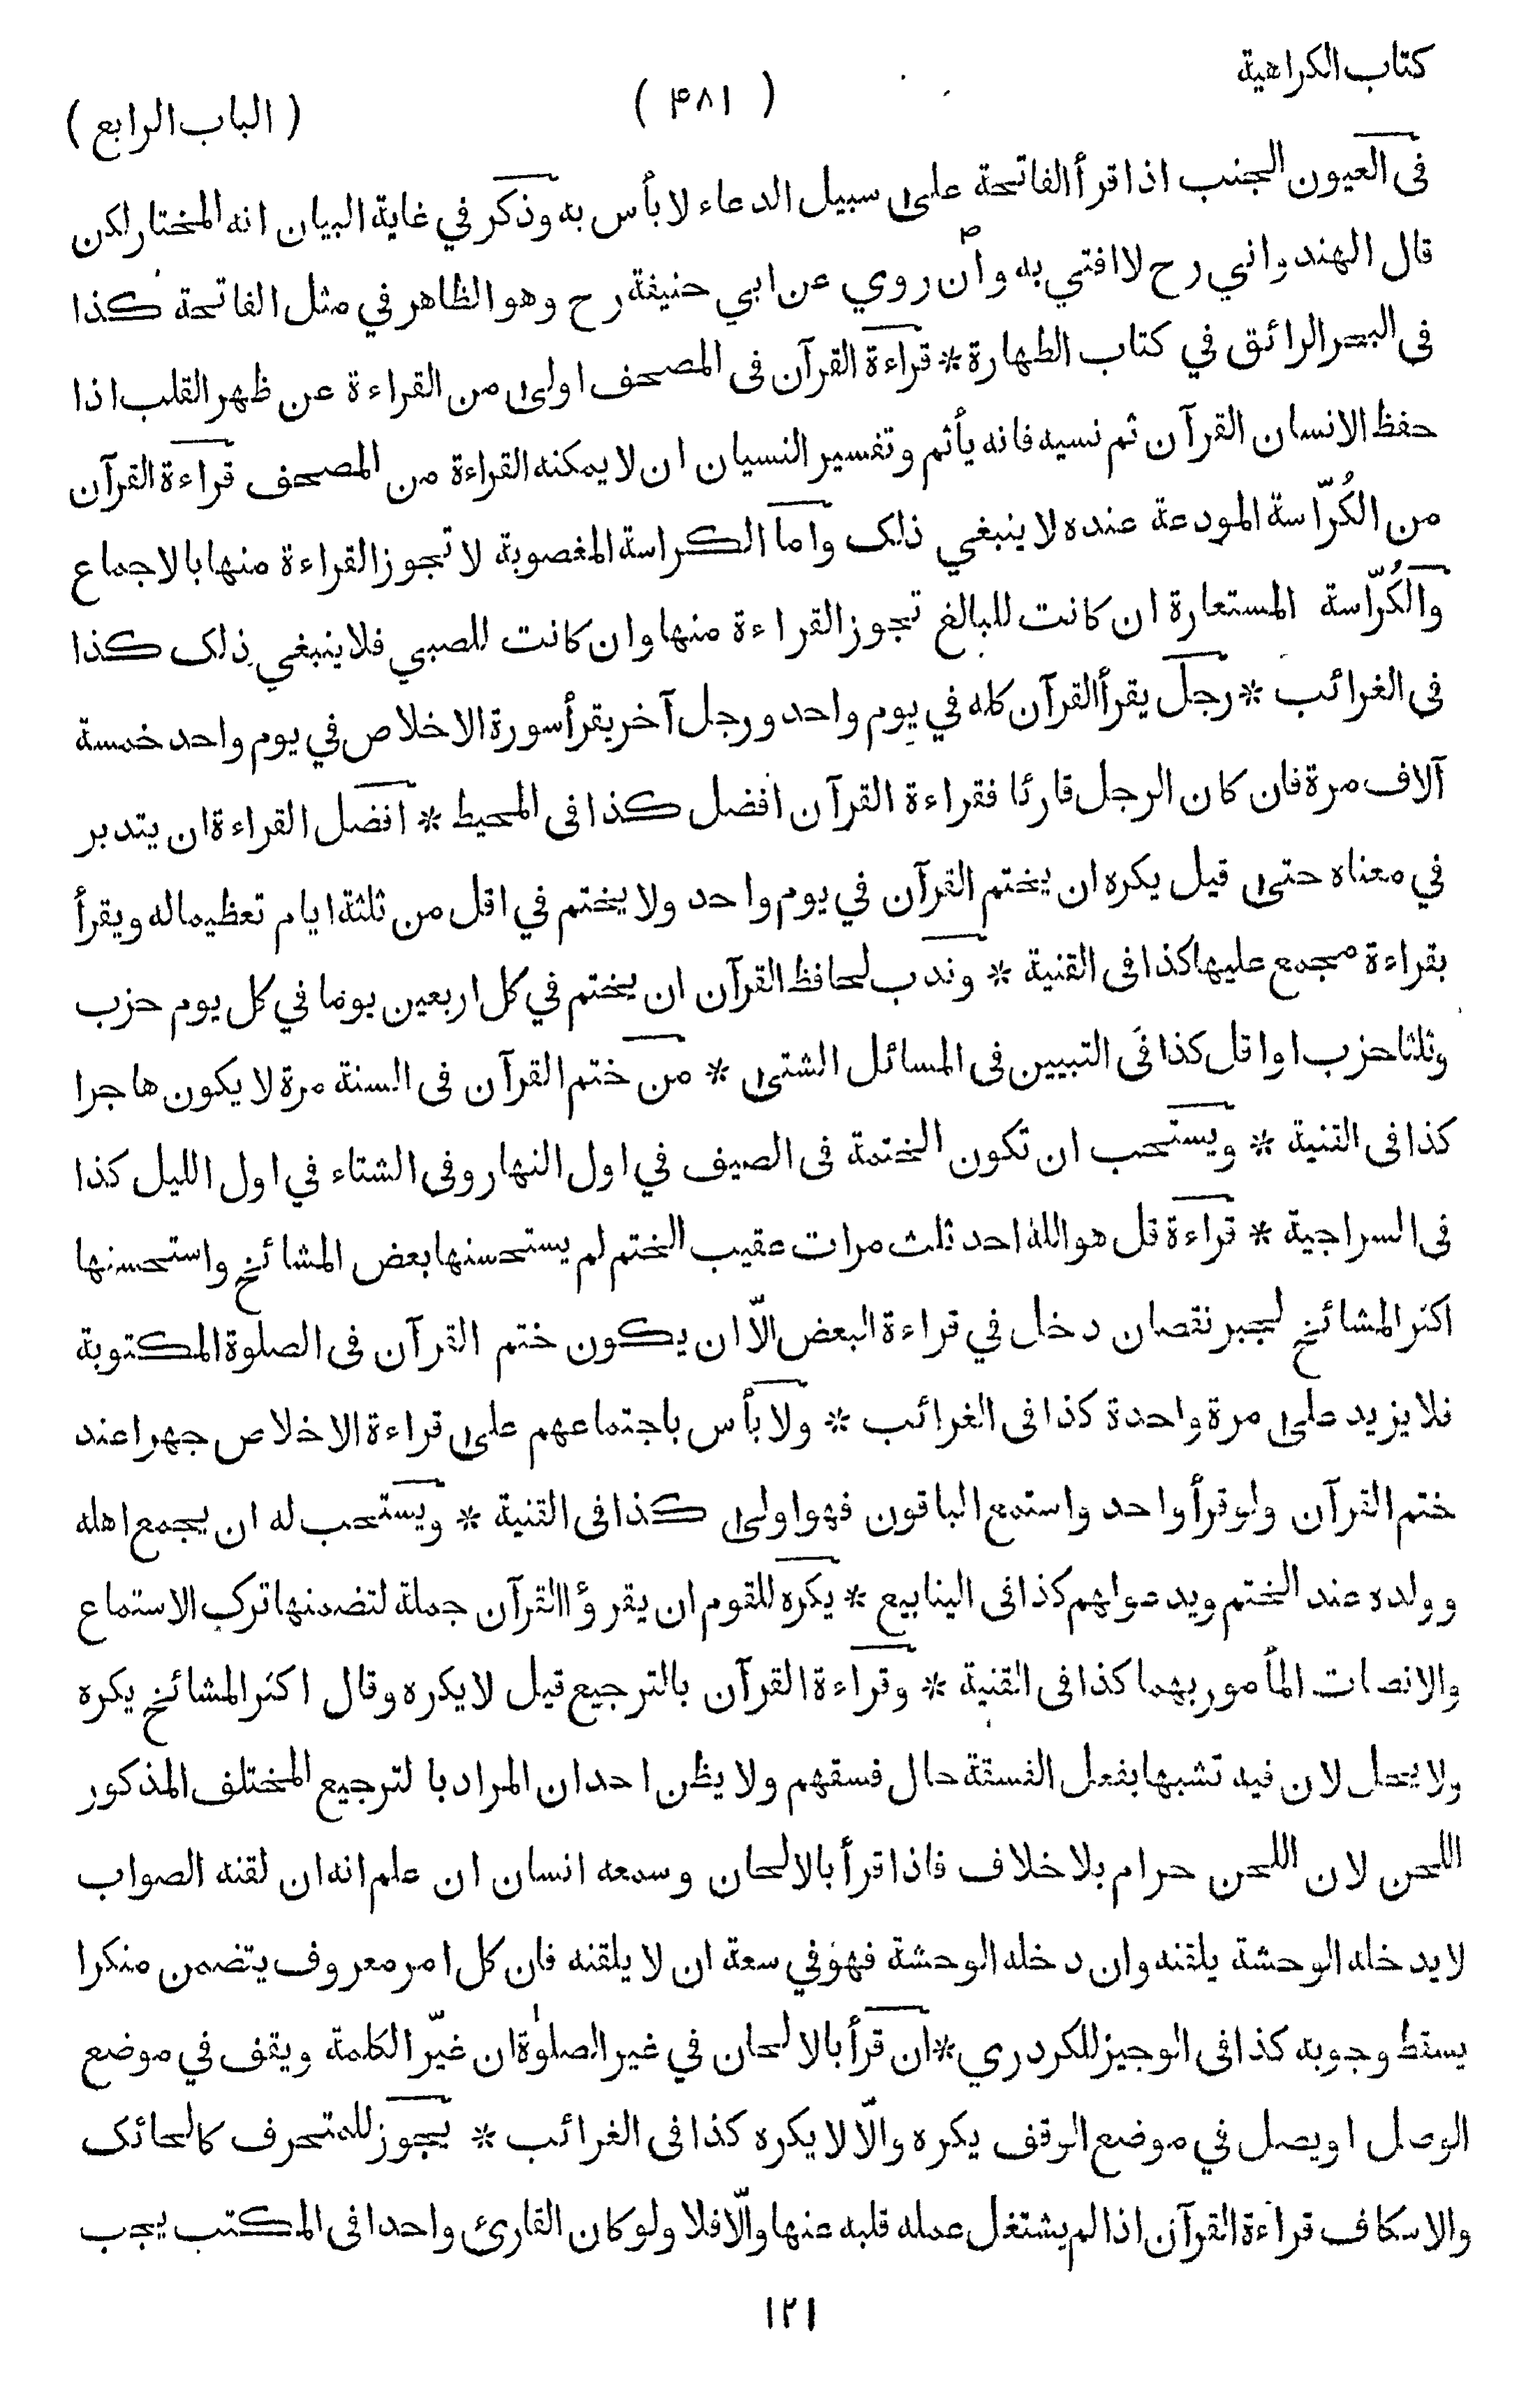 كتاب الكراهية
( ۴۸۱ )
( الباب الرابع )
فى العيون الجنب اذا قرأ الفاتحة على سبيل الدعاء لا بأس به وذكر في غاية البيان انه المختار لكن
قال الهندواني رح لا افتي به وان روي عن ابي حنيفة رح وهو الظاهر في مثل الفاتحة كذا
فى البحر الرائق في كتاب الطهارة * قراءة القرآن فى المصحف اولى من القراءة عن ظهر القلب اذا
حفظ الانسان القرآن ثم نسيه فانه يأثم وتفسير النسيان ان لا يمكنه القراءة من المصحف قراءة القرآن
من الكُرّاسة المودعة عنده لا ينبغي ذلك واما الكراسة المغصوبة لا تجوز القراءة منها بالاجماع
والكُرّاسة المستعارة ان كانت للبالغ تجوز القراءة منها وان كانت للصبي فلا ينبغي ذلك كذا
فى الغرائب * رجل يقرأ القرآن كله في يوم واحد ورجل آخر يقرأ سورة الاخلاص في يوم واحد خمسة
آلاف مرة فان كان الرجل قارئا فقراءة القرآن افضل كذا فى المحيط * افضل القراءة ان يتدبر
في معناه حتى قيل يكره ان يختم القرآن في يوم واحد ولا يختم في اقل من ثلثة ايام تعظيما له ويقرأ
بقراءة مجمع عليها كذا فى القنية * وندب لحافظ القرآن ان يختم في كل اربعين يوما في كل يوم حزب
وثلثا حزب او اقل كذا فى التبيين فى المسائل الشتى * من ختم القرآن فى السنة مرة لا يكون هاجرا
كذا فى القنية * ويستحب ان تكون الختمة فى الصيف في اول النهار وفى الشتاء في اول الليل كذا
فى السراجية * قراءة قل هو الله احد ثلث مرات عقيب الختم لم يستحسنها بعض المشائخ واستحسنها
اكثر المشائخ لجبر نقصان دخل في قراءة البعض الّا ان يكون ختم القرآن فى الصلوة المكتوبة
فلا يزيد على مرة واحدة كذا فى الغرائب * ولا بأس باجتماعهم على قراءة الاخلاص جهرا عند
ختم القرآن ولو قرأ واحد واستمع الباقون فهو اولى كذا فى القنية * ويستحب له ان يجمع اهله
وولده عند الختم ويدعو لهم كذا فى الينابيع * يكره للقوم ان يقرؤا القرآن جملة لتضمنها ترك الاستماع
والانصات المأمور بهما كذا فى القنية * وقراءة القرآن بالترجيع قيل لا يكره وقال اكثر المشائخ يكره
ولا يحل لان فيه تشبها بفعل الفسقة حال فسقهم ولا يظن احد ان المراد بالترجيع المختلف المذكور
اللحن لان اللحن حرام بلا خلاف فاذا قرأ بالالحان وسمعه انسان ان علم انه ان لقنه الصواب
لا يدخله الوحشة يلقنه وان دخله الوحشة فهو في سعة ان لا يلقنه فان كل امر معروف يتضمن منكرا
يسقط وجوبه كذا فى الوجيز للكردري * ان قرأ بالالحان في غير الصلوٰة ان غيّر الكلمة ويقف في موضع
الوصل او يصل في موضع الوقف يكره والّا لا يكره كذا فى الغرائب * يجوز للمتحرف كالحائك
والاسكاف قراءة القرآن اذا لم يشتغل عمله قلبه عنها والّا فلا ولو كان القارئ واحدا فى المكتب يجب
١٢١